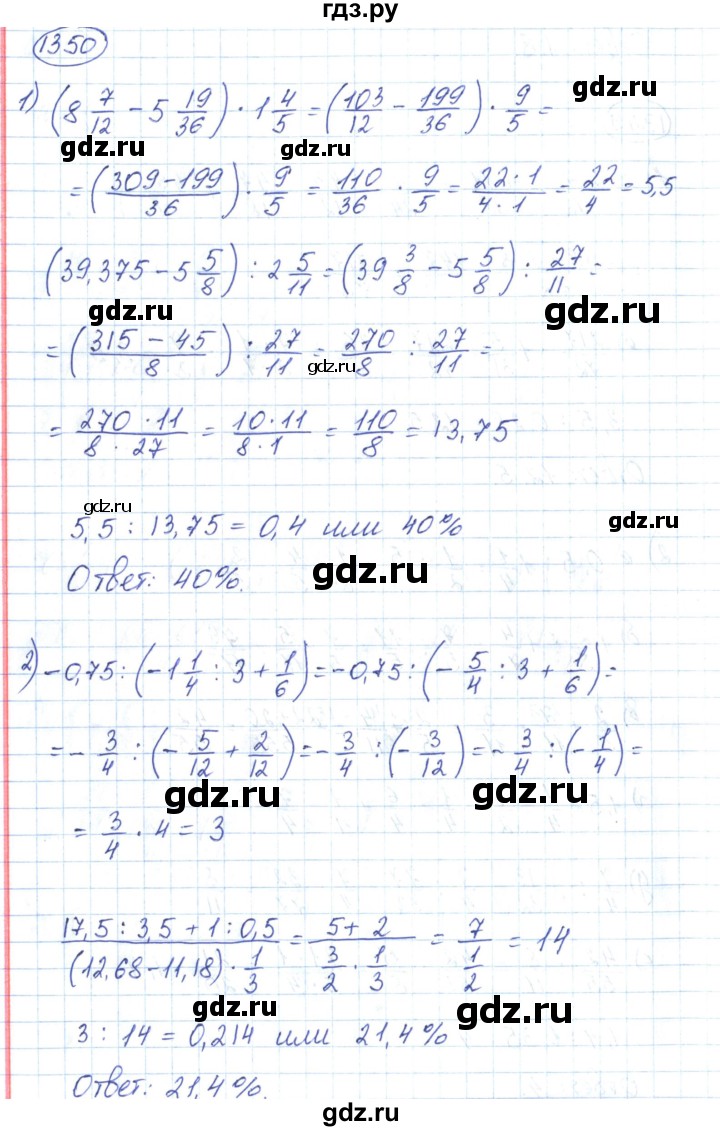 гдз.ру
1350
1) (8 7/12 − 5 19/36) · 1 4/5 = (103/12 − 199/36) · 9/5 =
gdz.ru
gdz.ru
gdz.ru
= ((309−199)/36) · 9/5 = 110/36 · 9/5 = (22·1)/(4·1) = 22/4 = 5,5
(39,375 − 5 5/8) : 2 5/11 = (39 3/8 − 5 5/8) : 27/11 =
gdz.ru
gdz.ru
= ((315 − 45)/8) : 27/11 = 270/8 : 27/11 =
gdz.ru
= (270 · 11)/(8 · 27) = (10·11)/(8·1) = 110/8 = 13,75
gdz.ru
gdz.ru
5,5 : 13,75 = 0,4 или 40%
Ответ: 40%.
gdz.ru
2) −0,75 : (−1 1/4 : 3 + 1/6) = −0,75 : (− 5/4 : 3 + 1/6) =
gdz.ru
gdz.ru
= − 3/4 : (− 5/12 + 2/12) = − 3/4 : (− 3/12) = − 3/4 : (− 1/4) =
gdz.ru
gdz.ru
= 3/4 · 4 = 3
(17,5 : 3,5 + 1 : 0,5)/((12,68−11,18) · 1/3) = (5+2)/(3/2 · 1/3) = 7/(1/2) = 14
gdz.ru
gdz.ru
3 : 14 = 0,214 или 21,4%
Ответ: 21,4%.
gdz.ru
gdz.ru